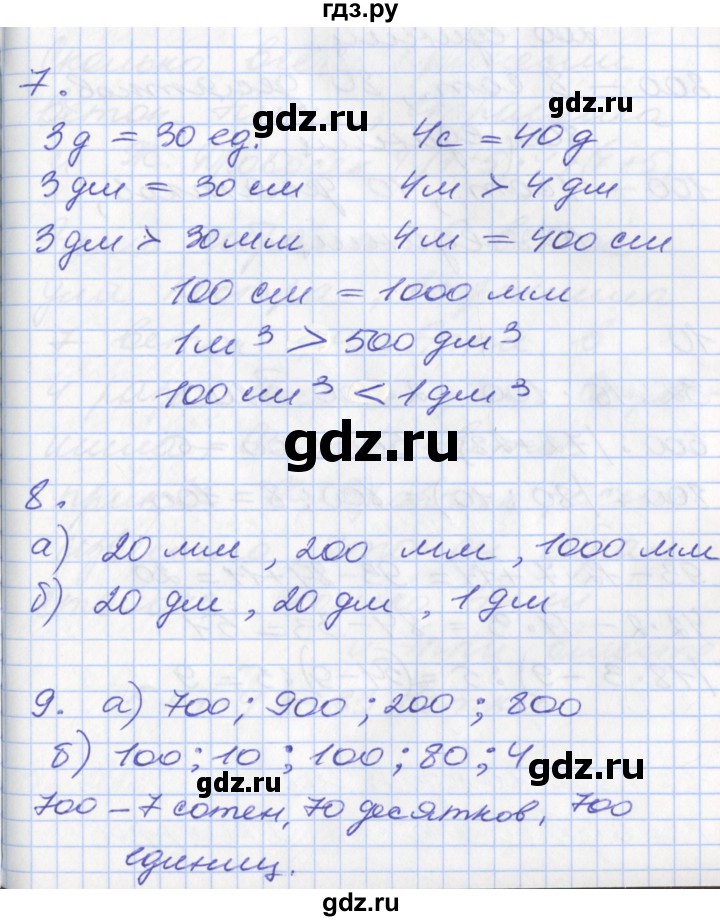 гдз.ру
7.
3д = 30 ед. 4с = 40д
3 дм = 30 см 4м > 4 дм
3 дм > 30 мм 4м = 400 см
100 см = 1000 мм
1м³ > 500 дм³
100 см³ < 1 дм³
8.
а) 20 мм , 200 мм , 1000 мм
б) 20 дм , 20 дм , 1 дм
9. а) 700 ; 900 ; 200 ; 800
б) 100 ; 10 ; 100 ; 80 ; 4
700 – 7 сотен, 70 десятков, 700
единиц.
gdz.ru
gdz.ru
gdz.ru
gdz.ru
gdz.ru
gdz.ru